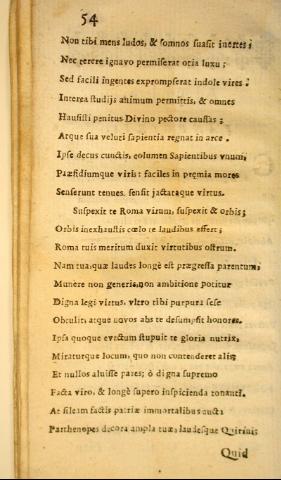 54
Non tibi mens ludos, & somnos suasit inertes;
Nec terere ignavo permiserat otia luxu;
Sed facili ingentes exprompserat indole vires.
Interea studijs animum permittis, & omnes
Hausisti penitus Divino pectore caussas;
Atque sua veluti sapientia regnat in arce.
Ipse decus cunctis, columen Sapientibus unum,
Præsidiumque viris: faciles in præmia mores
Senserunt tenues, sensit jactataque virtus.
Suspexit te Roma virum, suspexit & orbis;
Orbis inexhaustis cœlo te laudibus effert;
Roma tuis meritum duxit virtutibus ostrum.
Nam tua, quæ laudes longè est prægressa parentum,
Munere non generis, non ambitione potitur
Digna legi virtus, vltro tibi purpura sese
Obtulit, atque novos abs te desumpsit honores.
Ipsa quoque evectum stupuit te gloria nutrix,
Miraturque locum, quo non contenderet alis;
Et nullos aluisse pares; ò digna supremo
Facta viro, & longè supero inspicienda tonanti.
At sileam factis patriæ immortalibus aucta
Parthenopes decora ampla tuæ, laudesque Quirinis
Quid